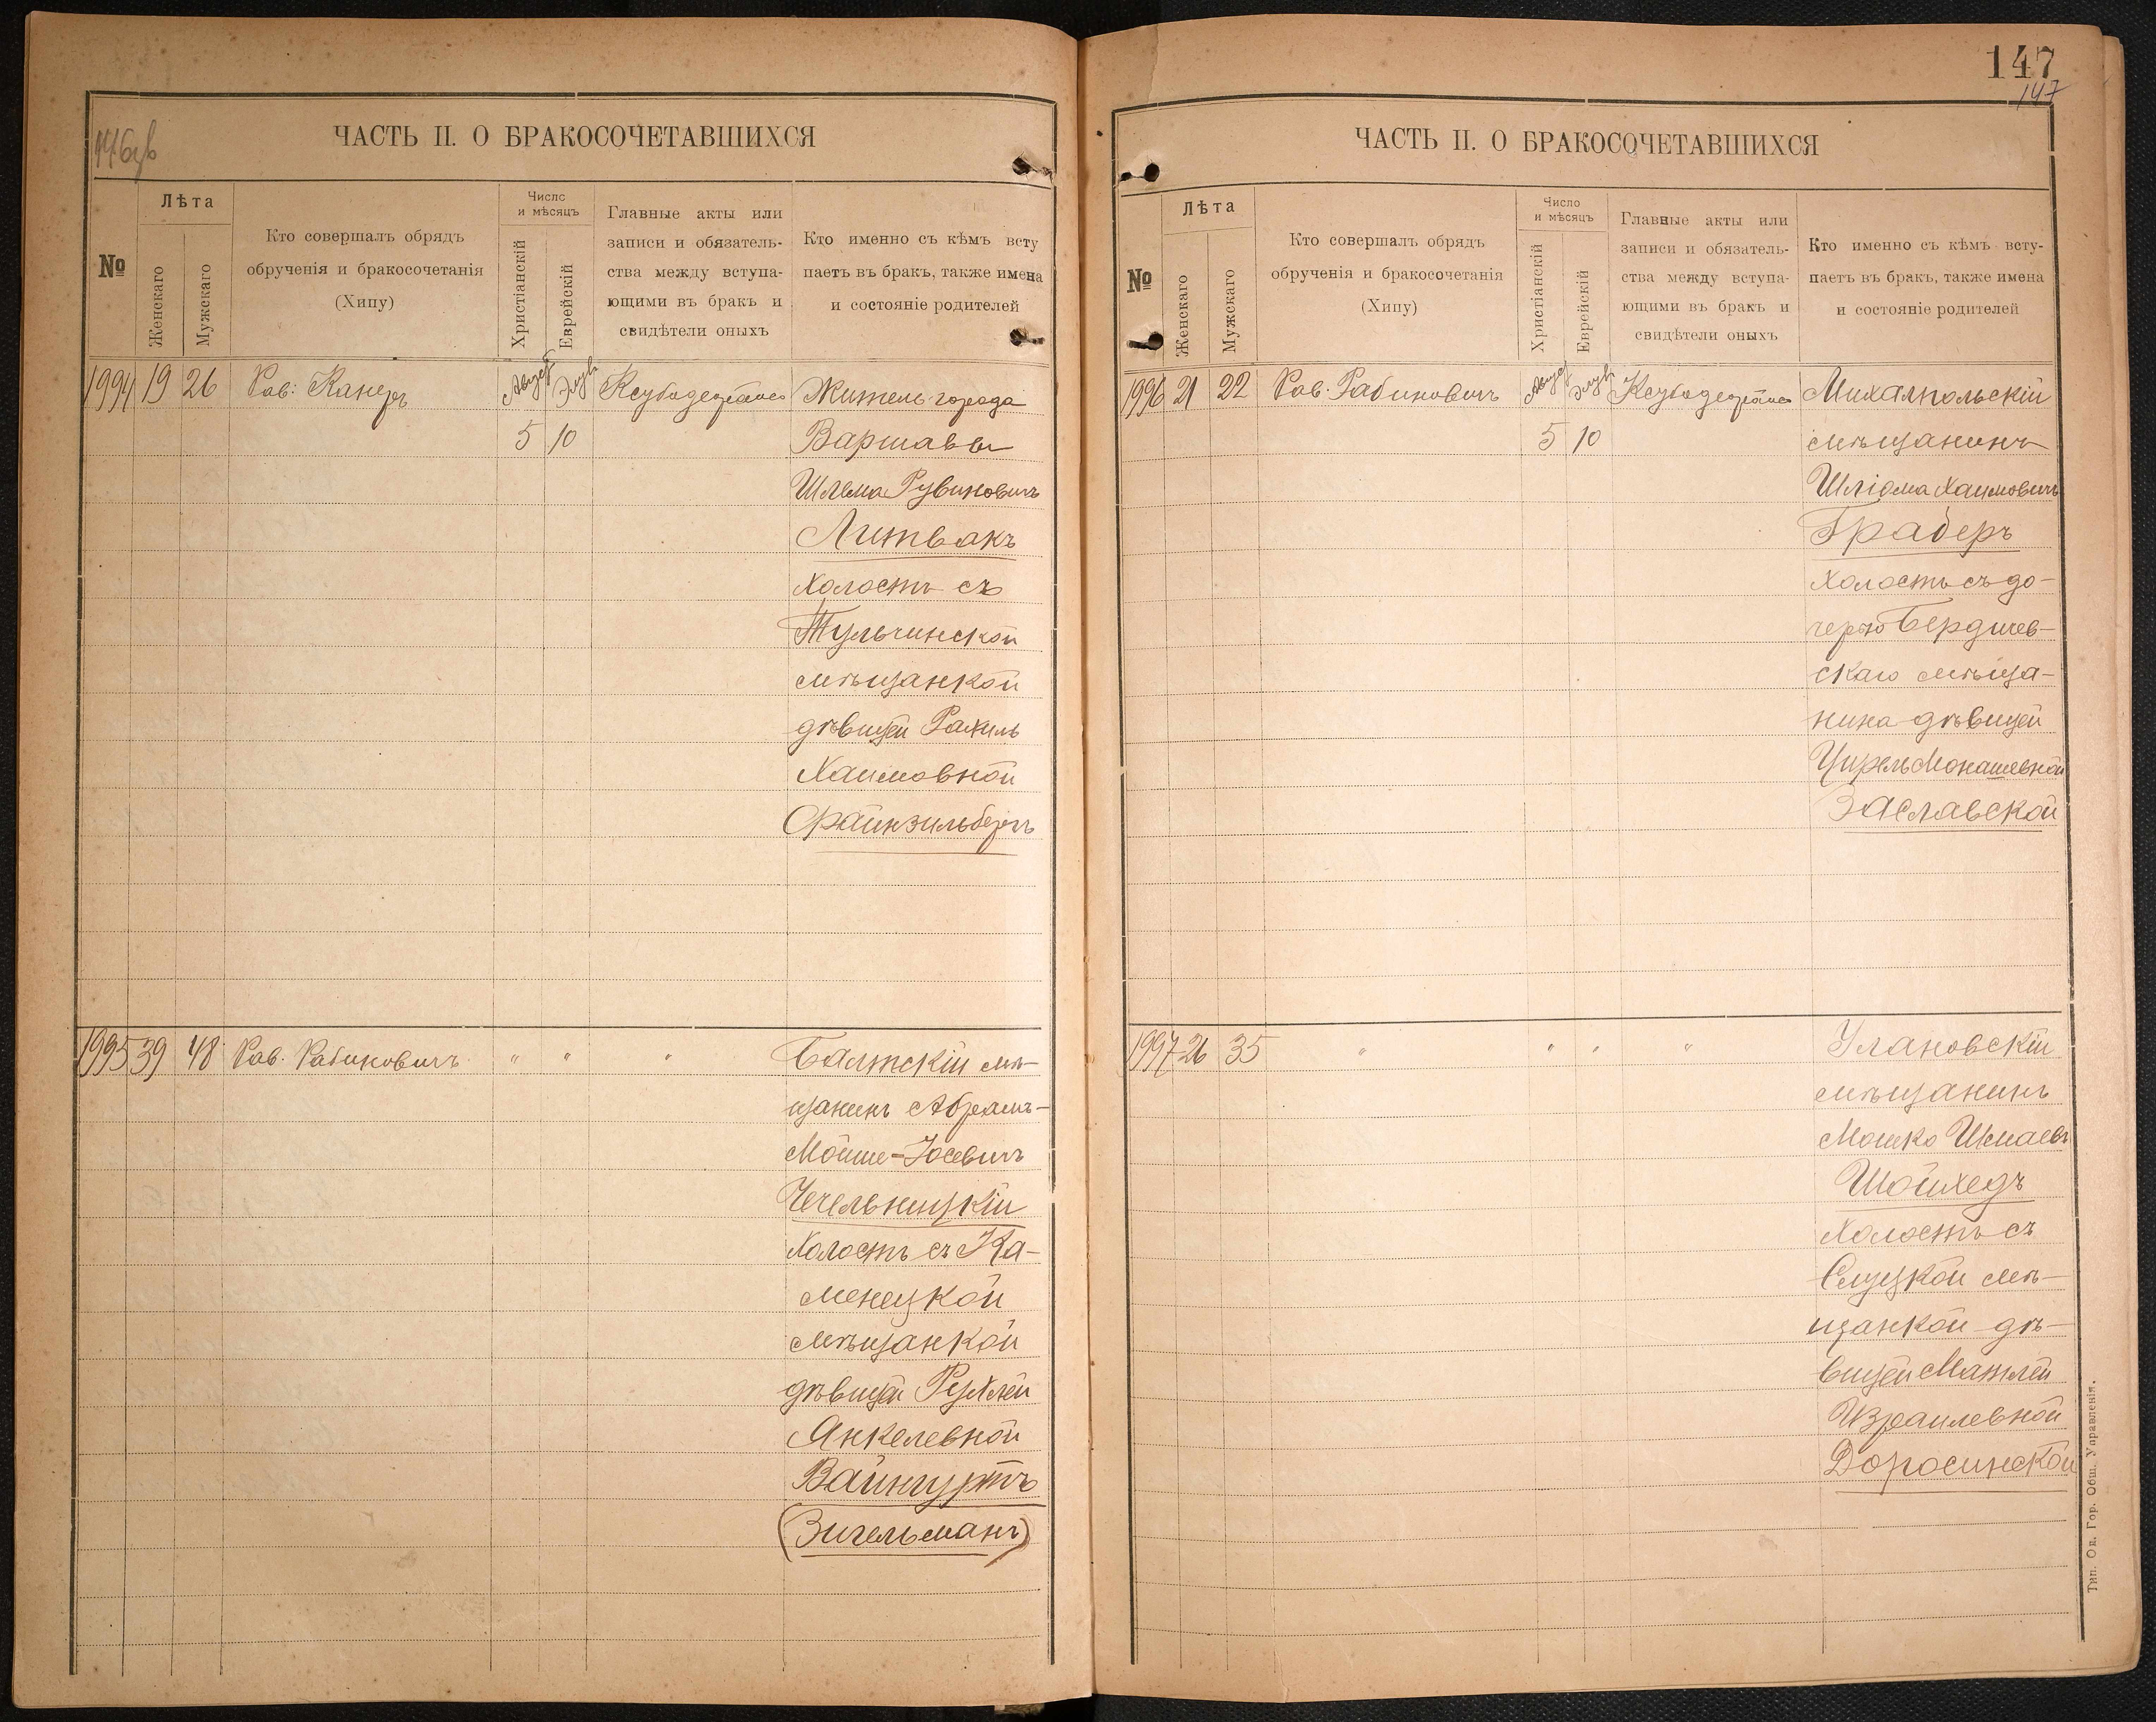 146об
ЧАСТЬ II. О БРАКОСОЧЕТАВШИХСЯ
№
Лѣта
Женскаго
Мужскаго
Кто совершалъ обрядъ
обрученія и бракосочетанія
(Хипу)
Число
и мѣсяцъ
Христіанскій
Еврейскій
Главные акты или
записи и обязатель-
ства между вступа-
ющими въ бракъ и
свидѣтели оныхъ
Кто именно съ кѣмъ всту
паетъ въ бракъ, также имена
и состояніе родителей
1994 19 26 Рав: Канеръ Август 5 Элул 10
Житель города
Варшавы
Шлема Рувиновичъ
Литвакъ
холостъ съ
Тульчинской
мѣщанкой
дѣвицей Рахиль
Хаимовной
Файнзильбергъ
1995 39 48 Рав. Рабиновичъ " " "
Балтскій мѣ-
щанинъ Абрамъ-
Мойше-Іосевичъ
Чечельницкій
холостъ съ Ка-
менецкой
мѣщанкой
дѣвицей Рухлей
Анкелевной
Вайнгуртъ
(Зигельманъ)
147
147
ЧАСТЬ II. О БРАКОСОЧЕТАВШИХСЯ
№
Лѣта
Женскаго
Мужскаго
Кто совершалъ обрядъ
обрученія и бракосочетанія
(Хипу)
Число
и мѣсяцъ
Христіанскій
Еврейскій
Главные акты или
записи и обязатель-
ства между вступа-
ющими въ бракъ и
свидѣтели оныхъ
Кто именно съ кѣмъ всту-
паетъ въ бракъ, также имена
и состояніе родителей
1996 21 22 Рав. Рабиновичъ Август 5 Элул 10
Михалпольскій
мѣщанинъ
Шліома Хаимовичъ
Граберъ
холостъ съ до-
черью Бердичев-
скаго мѣща-
нина дѣвицей
Цирель Монашевной
Заславской
1997 26 35 " " " "
Улановскій
мѣщанинъ
Мошко Шмаевъ
Шойхедъ
холостъ съ
Слуцкой мѣ-
щанкой дѣ-
вицей Матлей
Израилевной
Доросинской
Тип. Од. Гор. Общ. Управленія.